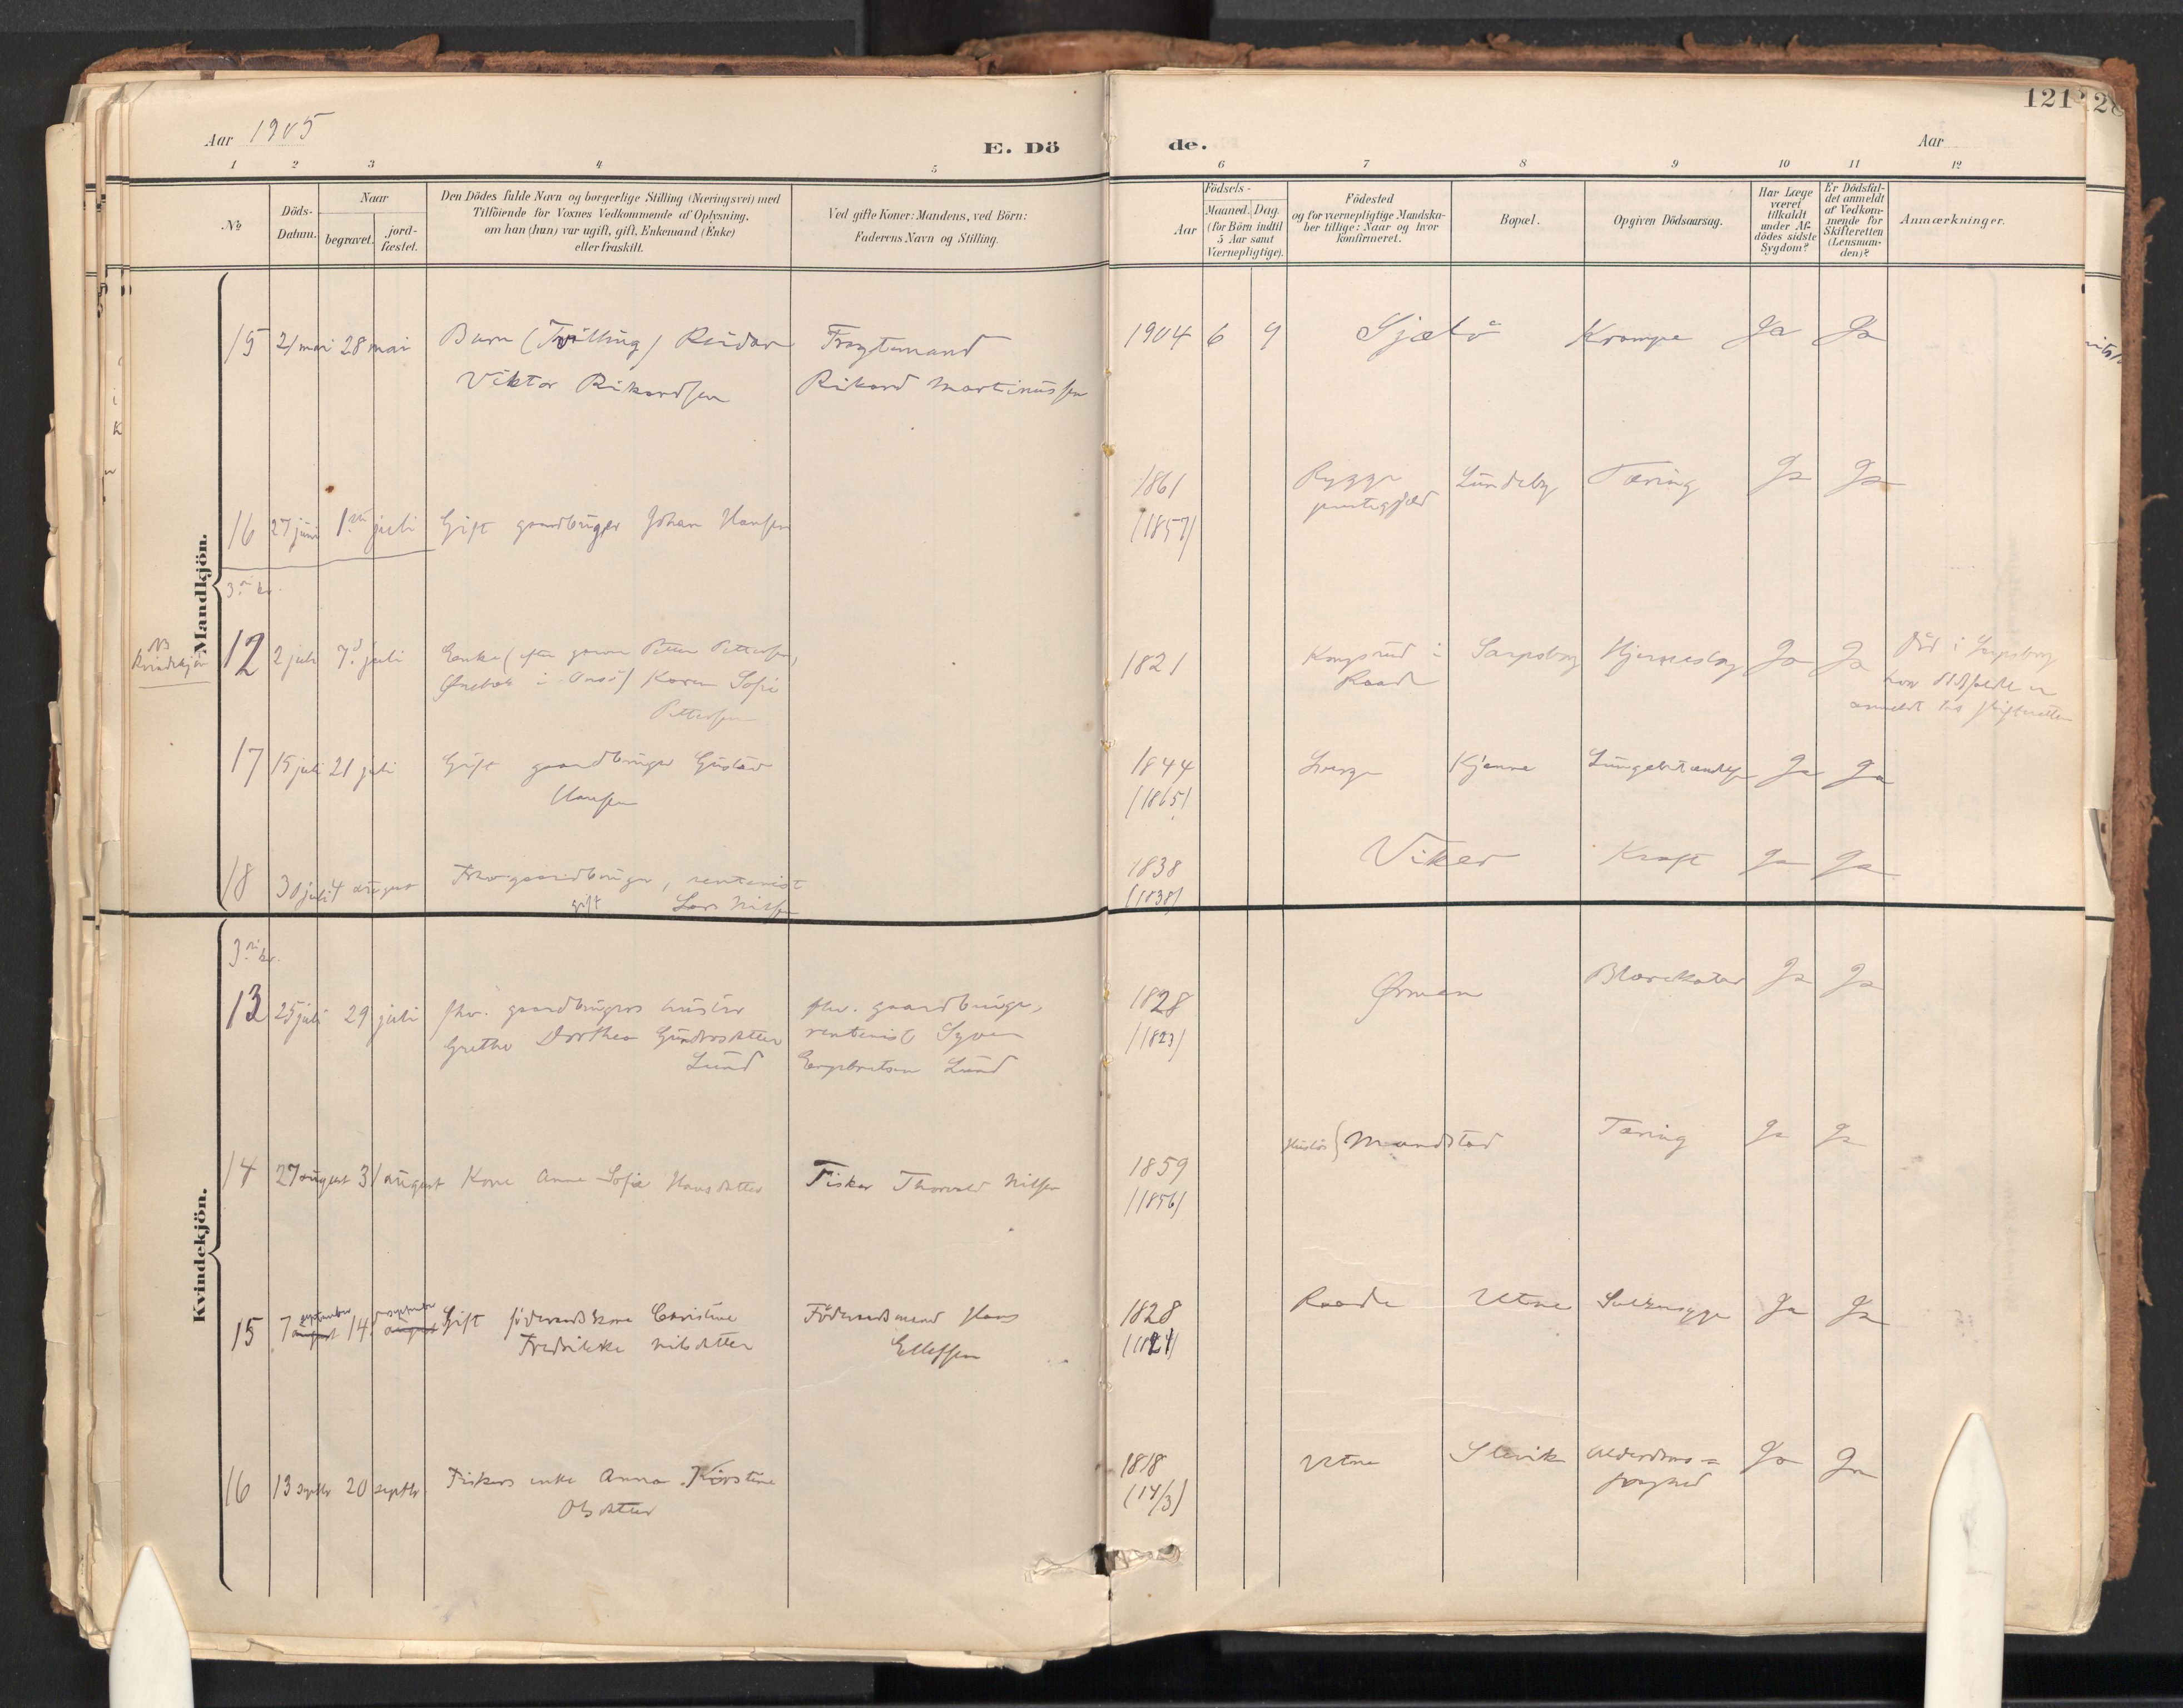 121
Aar 1905
E. Döde.
Aar
1 2 3 4 5 6 7 8 9 10 11 12
No
Döds-Datum.
Naar
begravet.
jord-fæstet.
Den Dödes fulde Navn og borgerlige Stilling (Næringsvei) med
Tilföiende for Voxnes Vedkommende af Oplysning,
om han (hun) var ugift, gift, Enkemand (Enke)
eller fraskilt.
Ved gifte Koner: Mandens, ved Börn:
Faderens Navn og Stilling.
Aar
Födsels-
Maaned. Dag.
(for Børn indtil
5 Aar samt
Værnepligtige).
Födested
og for værnepligtige Mandska-
ber tillige: Naar og hvor
konfirmeret.
Bopæl.
Opgiven Dödsaarsag.
Har Læge
været
tilkaldt
under Af-
dödes sidste
Sygdom?
Er Dödsfal-
det anmeldt
af Vedkom-
mende for
Skifteretten
(Lensman-
den)?
Anmærkninger.
Mandkjön.
15 21 mai 28 mai Barn (Tvilling) Reidar Fragtemand 1904 6 9 Sjælö Krampe Ja Ja
Viktor Rikardsen Rikard Martinussen
16 27 juni 1ste juli Gift gaardbruger Johan Hansen 1861 Rygge Lundeby Tæring Ja Ja
(1857) prestegjeld
3die kv.
NB
Kvindekjön
12 2 juli 7d juli Enke (efter Petter Pettersen, 1821 Kongsrud i Sarpsborg Hjerneslag Ja Ja Död i Sarpsborg
i Onsö) Karen Sofie Raade hvor dödsfaldet er
Pettersen anmeldt for skifteretten
17 15 juli 21 juli Gift gaardbruger Gustav 1844 Kjenne Lungebetændelse Ja Ja
Hansen (1865)
18 30 juli 4 august Fhv. gaardbruger, rentenist 1838 Viker Kræft Ja Ja
gift Lars Nilsen (1838)
Kvindekjön.
3die kv.
13 25 juli 29 juli fhv. gaardbrugers hustru fhv. gaardbruger, 1828 Ørmen Blærekatar Ja Ja
Grethe Dorthea Gundersdatter rentenist Syver (1823)
Lund Engebretsen Lund
14 27 august 31 august Kone Anne Sofie Hansdatter Fisker Thorvald Nilsen 1859 Mandstad Tæring Ja Ja
(1856)
15 7 september august 14d september august Gift föderaadskone Christine Föderaadsmand Hans 1828 Raade Utne Sukkersyge Ja Ja
Fredrikke Nilsdatter Ellefsen (1824)
16 13 septbr 20 septbr Fiskers enke Anna Kirstine 1818 Utne Slevik Alderdoms- Ja Ja
Olsdatter (14/3)